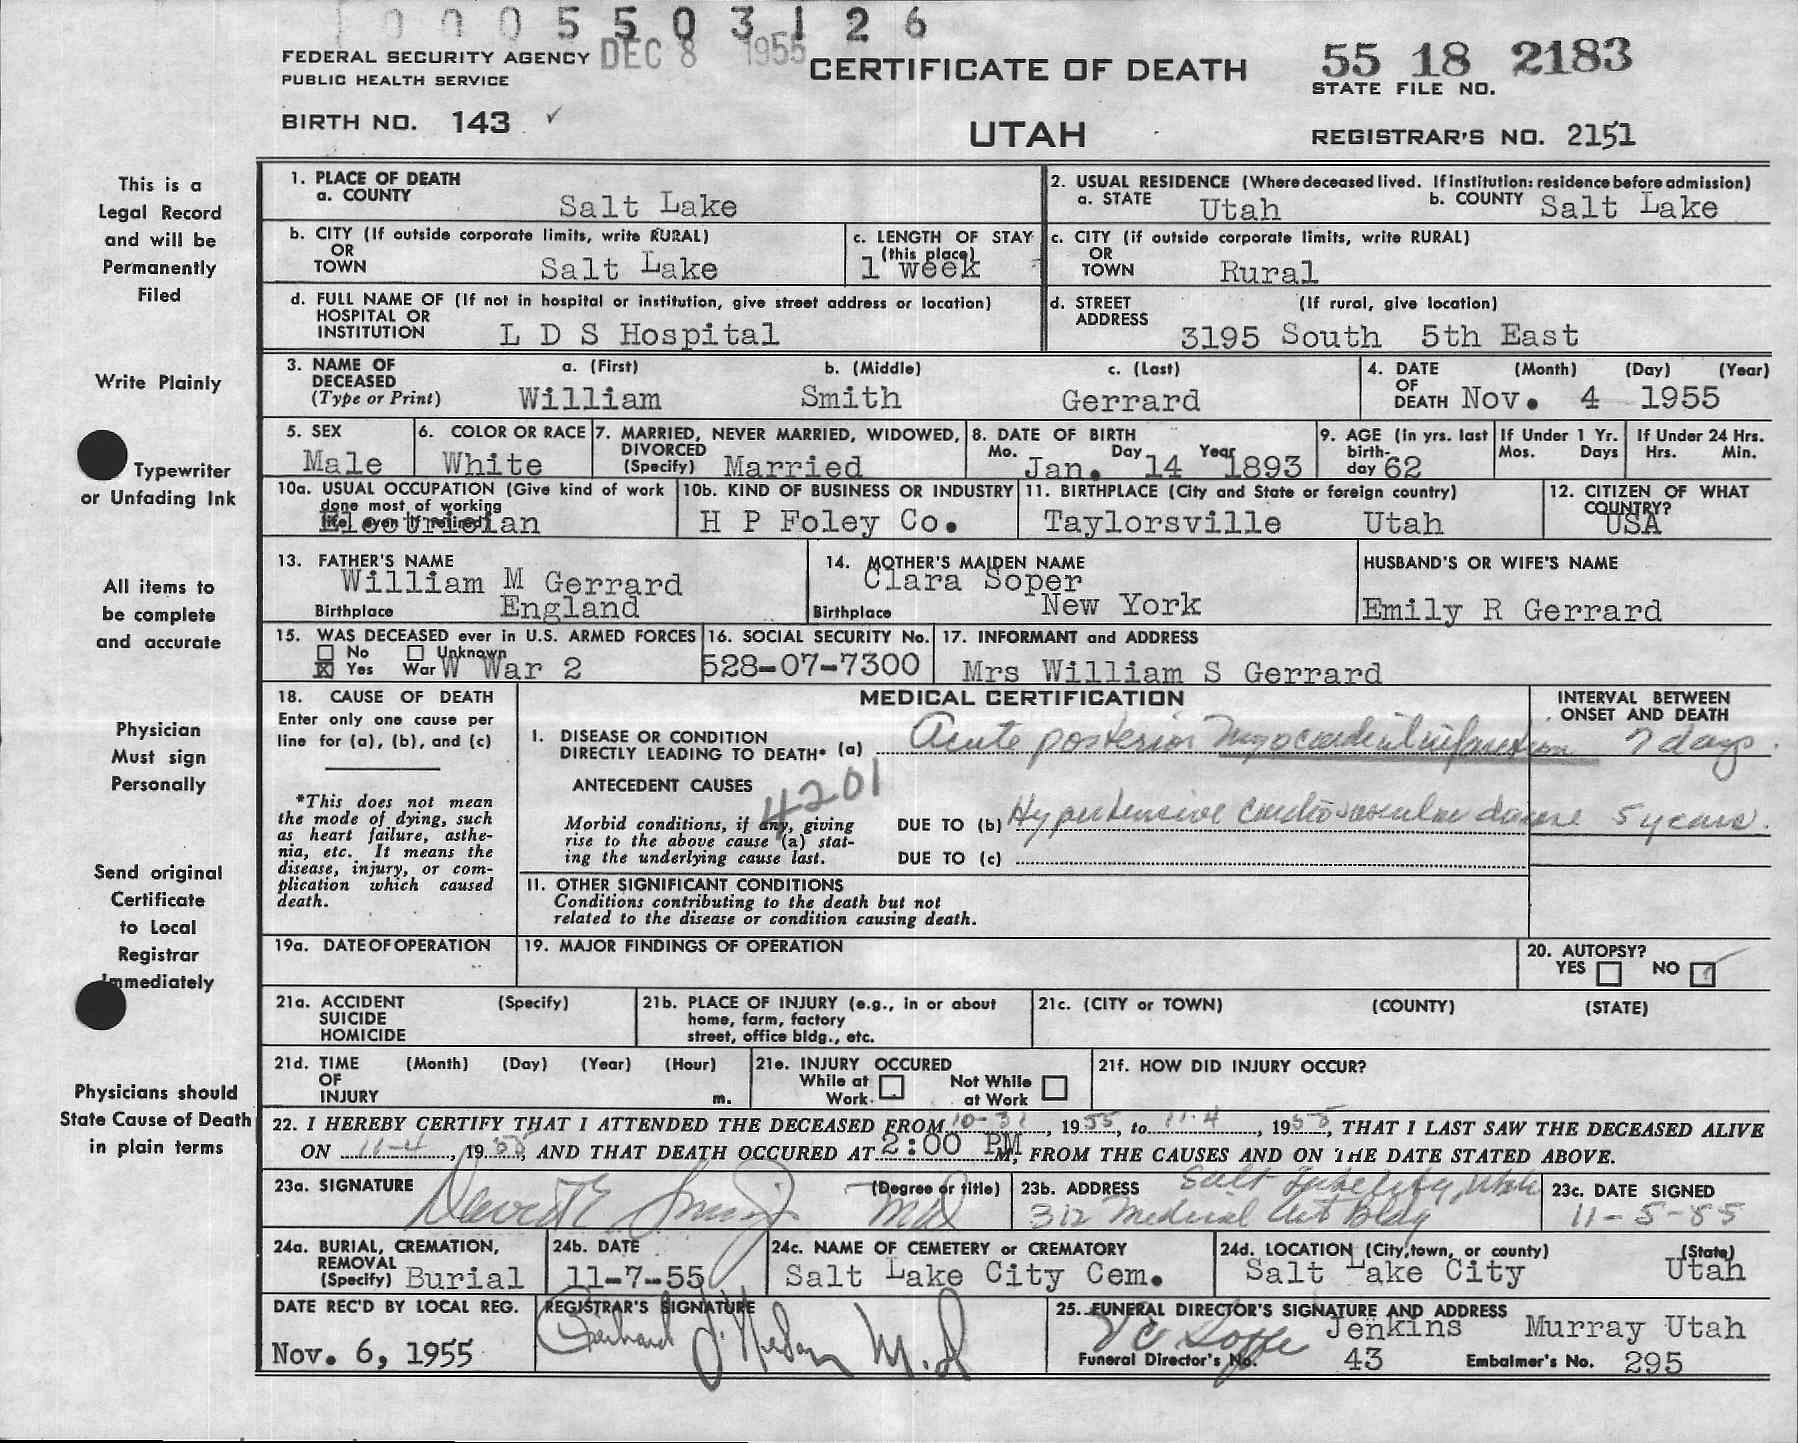 0 0 0 5 5 0 3 1 2 6
FEDERAL SECURITY AGENCY DEC 8 1955
PUBLIC HEALTH SERVICE
CERTIFICATE OF DEATH
UTAH
55 18 2183
STATE FILE NO.
BIRTH NO. 143 ✓
REGISTRAR'S NO. 2151
This is a
Legal Record
and will be
Permanently
Filed
Write Plainly
Typewriter
or Unfading Ink
All items to
be complete
and accurate
Physician
Must sign
Personally
Send original
Certificate
to Local
Registrar
Immediately
Physicians should
State Cause of Death
in plain terms
1. PLACE OF DEATH
a. COUNTY Salt Lake
2. USUAL RESIDENCE (Where deceased lived. If institution: residence before admission)
a. STATE Utah b. COUNTY Salt Lake
b. CITY (If outside corporate limits, write RURAL)
OR
TOWN Salt Lake
c. LENGTH OF STAY
(this place)
1 week
c. CITY (if outside corporate limits, write RURAL)
OR
TOWN Rural
d. FULL NAME OF (If not in hospital or institution, give street address or location)
HOSPITAL OR
INSTITUTION L D S Hospital
d. STREET (If rural, give location)
ADDRESS
3195 South 5th East
3. NAME OF a. (First) b. (Middle) c. (Last)
DECEASED
(Type or Print) William Smith Gerrard
4. DATE (Month) (Day) (Year)
OF
DEATH Nov. 4 1955
5. SEX
Male
6. COLOR OR RACE
White
7. MARRIED, NEVER MARRIED, WIDOWED,
DIVORCED
(Specify) Married
8. DATE OF BIRTH
Mo. Day Year
Jan. 14 1893
9. AGE (in yrs. last
birth-
day 62
If Under 1 Yr.
Mos. Days
If Under 24 Hrs.
Hrs. Min.
10a. USUAL OCCUPATION (Give kind of work
done most of working
life, even if retired)
Electrician
10b. KIND OF BUSINESS OR INDUSTRY
H P Foley Co.
11. BIRTHPLACE (City and State or foreign country)
Taylorsville Utah
12. CITIZEN OF WHAT
COUNTRY?
USA
13. FATHER'S NAME
William M Gerrard
Birthplace England
14. MOTHER'S MAIDEN NAME
Clara Soper
Birthplace New York
HUSBAND'S OR WIFE'S NAME
Emily R Gerrard
15. WAS DECEASED ever in U.S. ARMED FORCES
No Unknown
Yes War W War 2
16. SOCIAL SECURITY No.
528-07-7300
17. INFORMANT and ADDRESS
Mrs William S Gerrard
18. CAUSE OF DEATH
Enter only one cause per
line for (a), (b), and (c)
*This does not mean
the mode of dying, such
as heart failure, asthe-
nia, etc. It means the
disease, injury, or com-
plication which caused
death.
MEDICAL CERTIFICATION
INTERVAL BETWEEN
ONSET AND DEATH
I. DISEASE OR CONDITION
DIRECTLY LEADING TO DEATH* (a) Acute posterior myocardial infarction 7 days.
ANTECEDENT CAUSES
4201
Morbid conditions, if any, giving
rise to the above cause (a) stat-
ing the underlying cause last.
DUE TO (b) Hypertensive cardiovascular disease 5 years.
DUE TO (c)
11. OTHER SIGNIFICANT CONDITIONS
Conditions contributing to the death but not
related to the disease or condition causing death.
19a. DATE OF OPERATION
19. MAJOR FINDINGS OF OPERATION
20. AUTOPSY?
YES NO ✓
21a. ACCIDENT (Specify)
SUICIDE
HOMICIDE
21b. PLACE OF INJURY (e.g., in or about
home, farm, factory
street, office bldg., etc.
21c. (CITY or TOWN) (COUNTY) (STATE)
21d. TIME (Month) (Day) (Year) (Hour)
OF
INJURY m.
21e. INJURY OCCURED
While at Work. Not While at Work
21f. HOW DID INJURY OCCUR?
22. I HEREBY CERTIFY THAT I ATTENDED THE DECEASED FROM 10-31, 1955, to 11-4, 1955, THAT I LAST SAW THE DECEASED ALIVE
ON 11-4, 1955, AND THAT DEATH OCCURED AT 2:00 PM M, FROM THE CAUSES AND ON THE DATE STATED ABOVE.
23a. SIGNATURE (Degree or title)
David E. MD
23b. ADDRESS Salt Lake City, Utah
312 Medical Art Bldg
23c. DATE SIGNED
11-5-55
24a. BURIAL, CREMATION,
REMOVAL
(Specify) Burial
24b. DATE
11-7-55
24c. NAME OF CEMETERY or CREMATORY
Salt Lake City Cem.
24d. LOCATION (City, town, or county) (State)
Salt Lake City Utah
DATE REC'D BY LOCAL REG.
Nov. 6, 1955
REGISTRAR'S SIGNATURE
M.D
25. FUNERAL DIRECTOR'S SIGNATURE AND ADDRESS
Jenkins Murray Utah
Funeral Director's No. 43 Embalmer's No. 295